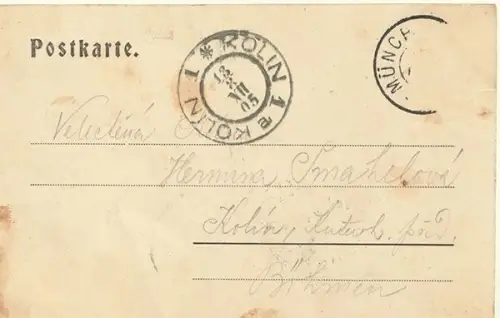 Postkarte.
* KOLIN 1 * KOLÍN 1
13 XII 05
MÜNCH
Velectěná
Hermina Smahelová
Kolín, Kutnoh. před.
Böhmen